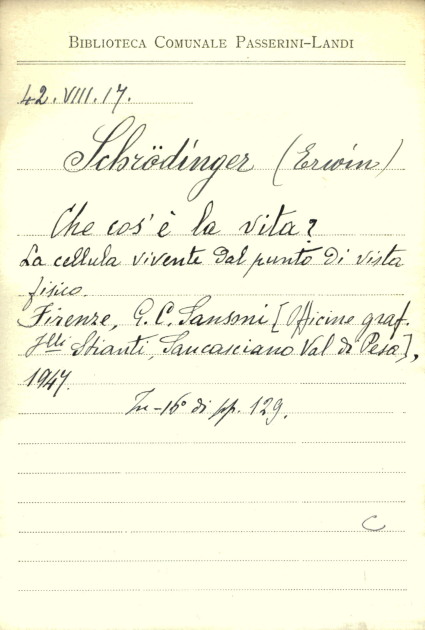 BIBLIOTECA COMUNALE PASSERINI-LANDI
42.VIII.17.
Schrödinger (Erwin)
Che cos'è la vita?
La cellula vivente dal punto di vista
fisico.
Firenze, G. C. Sansoni [Officine graf.
f.lli Stianti, Sancasciano Val di Pesa],
1947.
In-16° di pp. 129.
C